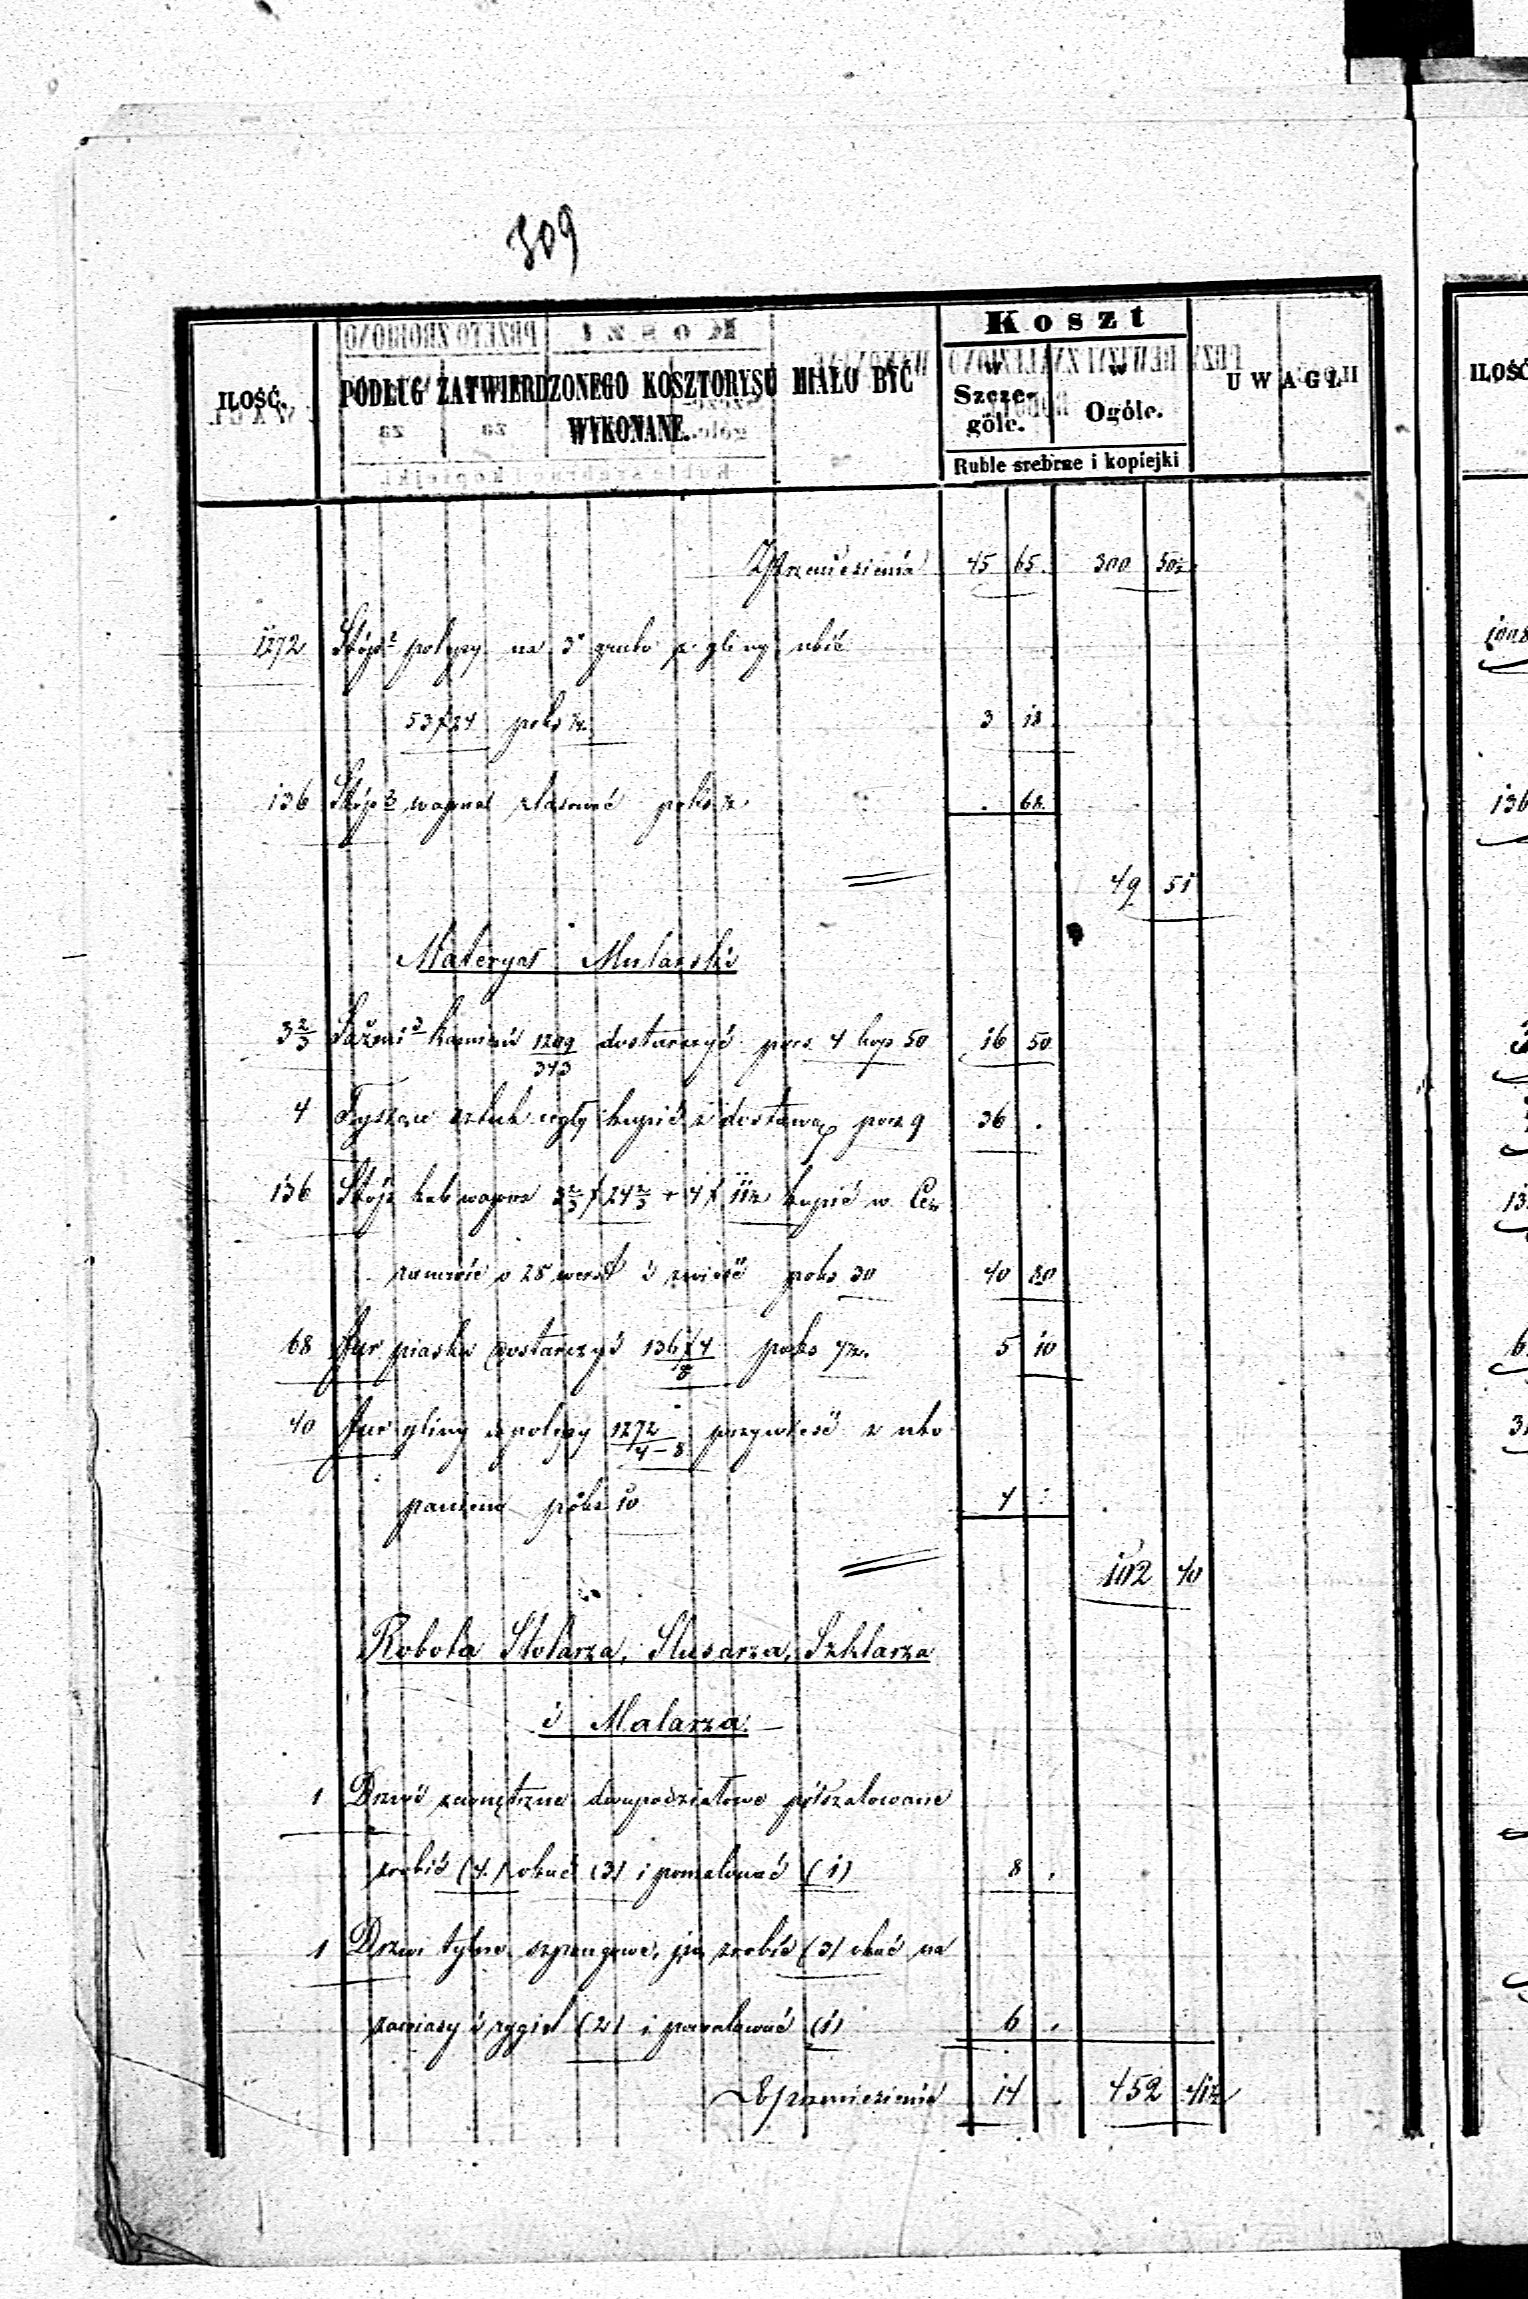 309
Koszt
ILOŚĆ. PODŁUG ZATWIERDZONEGO KOSZTORYSU MIAŁO BYĆ WYKONANE. w Szczególe. w Ogóle. UWAGI
Ruble srebrne i kopiejki
Z Przeniesienia 45 65. 300 50½
1272 Stóp² polepy na 3" grubo z gliny ubić
53×24 poko ¼ 3 18
136 Stóp³ wapna zlasować poko ½ . 68.
49 51
Materyał Mularski
3⅔ Sążni³ kamieni 1209/343 dostarczyć po rs 4 kop 50 16 50
4 Tysiące sztuk cegły kupić z dostawą po rs 9 36 .
136 Stóp kub wapna 3⅔ × 24⅔ + 4 × 11½ kupić w
o 28 werst i zwieść poko 30 40 80
68 fur piasku dostarczyć 136×4/8 poko 7½. 5 10
40 fur gliny polepy 1272/4-8 przywieść z uko
paniem poko 10 4 .
102 40
Robota Stolarza, Slusarza, Szklarza
i Malarza
1 Drzwi zewnętrzne dwupodziałowe półszalowane
zrobić (4.) okuć (3) i pomalować (1) 8 .
1 Drzwi tylne szpungowe, zrobić (3) okuć na
zawiasy i rygiel (2) i pomalować (1) 6 .
Do przeniesienia 14 . 452 41½